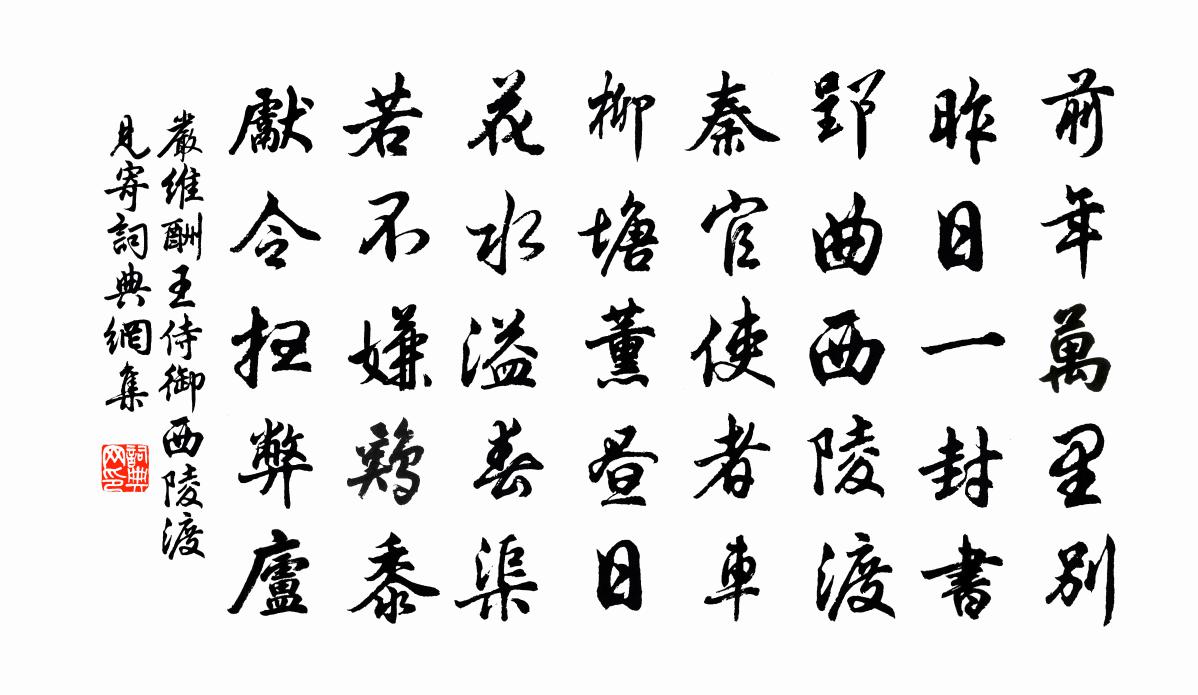 前年萬里別
昨日一封書
郢曲西陵渡
秦官使者車
柳塘薰晝日
花水溢春渠
若不嫌鷄黍
獻令掃弊廬
嚴維酬王侍御西陵渡
見寄詞典網集
詞典网印